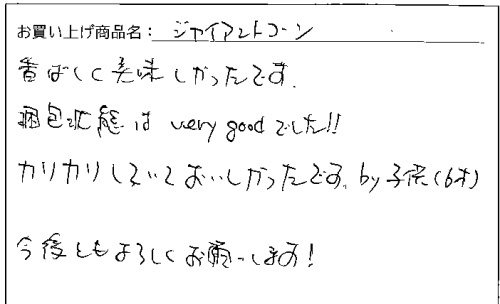 お買い上げ商品名: ジャイアントコーン
香ばしく美味しかったです。
梱包状態は very good でした!!
カリカリしていておいしかったです。by 子供(6才)
今後ともよろしくお願いします!